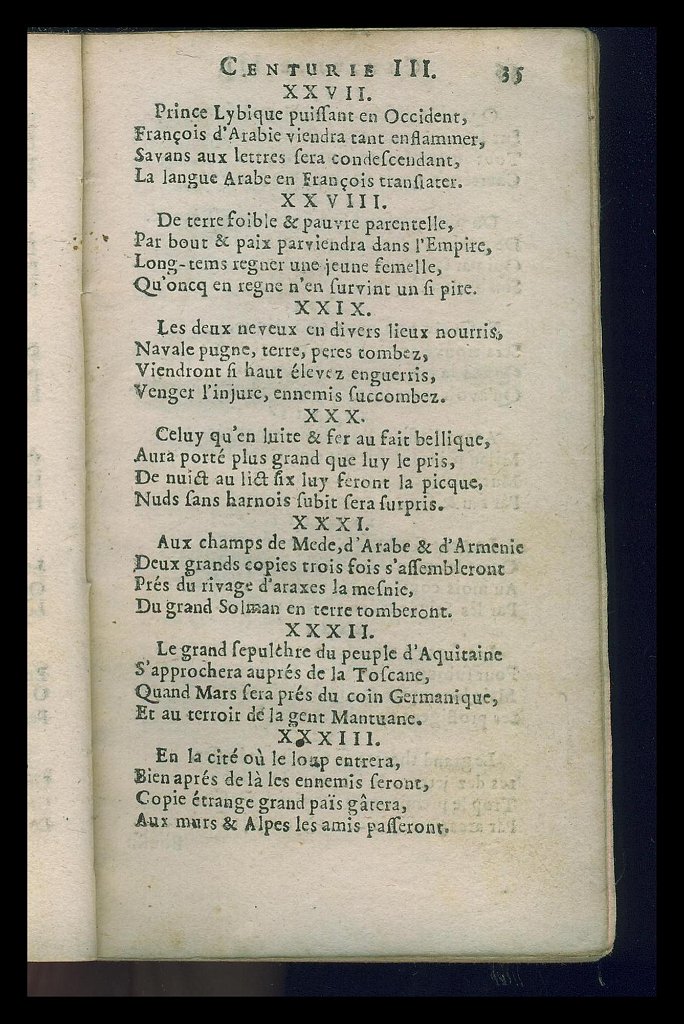 CENTURIE III. 35
XXVII.
Prince Lybique puiſſant en Occident,
François d'Arabie viendra tant enflammer,
Savans aux lettres ſera condeſcendant,
La langue Arabe en François tranſlater.
XXVIII.
De terre foible & pauvre parentelle,
Par bout & paix parviendra dans l'Empire,
Long-tems regner une jeune femelle,
Qu'oncq en regne n'en ſurvint un ſi pire.
XXIX.
Les deux neveux en divers lieux nourris,
Navale pugne, terre, peres tombez,
Viendront ſi haut élevez enguerris,
Venger l'injure, ennemis ſuccombez.
XXX.
Celuy qu'en luite & fer au fait bellique,
Aura porté plus grand que luy le pris,
De nuict au lict ſix luy feront la picque,
Nuds ſans harnois ſubit ſera ſurpris.
XXXI.
Aux champs de Mede, d'Arabe & d'Armenie
Deux grands copies trois fois s'aſſembleront
Prés du rivage d'araxes la meſnie,
Du grand Solman en terre tomberont.
XXXII.
Le grand ſepulchre du peuple d'Aquitaine
S'approchera auprés de la Toſcane,
Quand Mars ſera prés du coin Germanique,
Et au terroir de la gent Mantuane.
XXXIII.
En la cité où le loup entrera,
Bien aprés de là les ennemis ſeront,
Copie étrange grand païs gâtera,
Aux murs & Alpes les amis paſſeront.